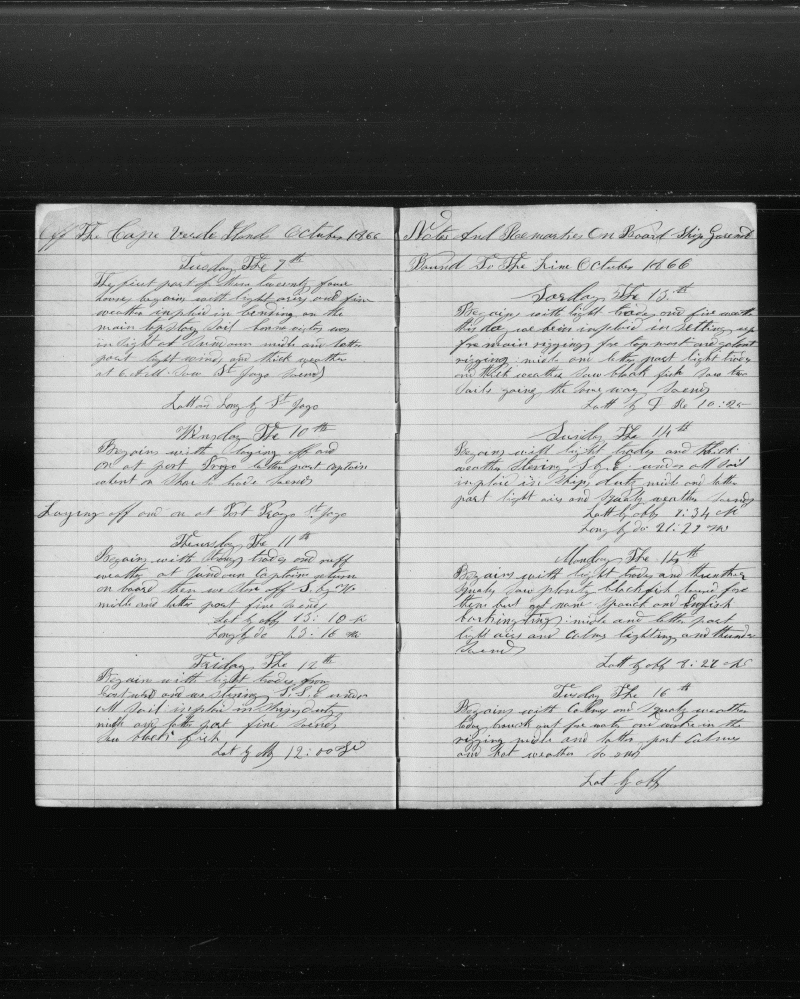 Off The Cape Verde Iland October 1866
Tuesday The 9th
The first part of these twenty four
hours begains with light airs and fine
weather implied in bending on the
main topsail
in light at Sundown midle and latter
part light winds and thick weather
at 6 AM Saw St Jago So ends
Latt and Long by St Jago
Wensday The 10 th
Begains with laying off and
on at port Prayo latter part captain
went on Shore to trade So ends
Laying off and on at Port Prayo St Jago
Thursday The 11 th
Begains with strong trades and ruff
weather at Sundown Captain return
on board then we off S. by
midle and latter part fine So ends
Lat by obs 13: 10
Long by do 23: 16
Friday The 12th
Begain with light trades from
and we stering S.S.E under
all Sail implied in Ships duty
midle and latter part fine So ends
Saw black fish
Lat by obs 12:00
Notes And Remarks On Board Ship
Bound To The October 1866
The 13. th
Begains with light trades and fine weather
this day we been implied in setting up
fore main rigging fore top mast and
rigging midle and latter part light trades
and thick weather Saw black fish Saw two
Sails going the Same way So ends
Latt by
Sunday The 14 th
Begains with light trades and thick
weather Stering S by E under all Sail
implied in Ships duty midle and latter
part light airs and Squaly weather So ends
Latt by obs 8:34
Long by do 21:29
Monday The 15th
Begains with light trades and thunder
Squals Saw plenty blackfish lowed for
them but got none
midle and latter part
light airs and Calms lightning and thunder
So ends
Latt by obs 8:27
Tuesday The 16 th
Begains with Calms and Squaly weather
today
rigging midle and latter part Calms
and hot weather So ends
Lat by obs